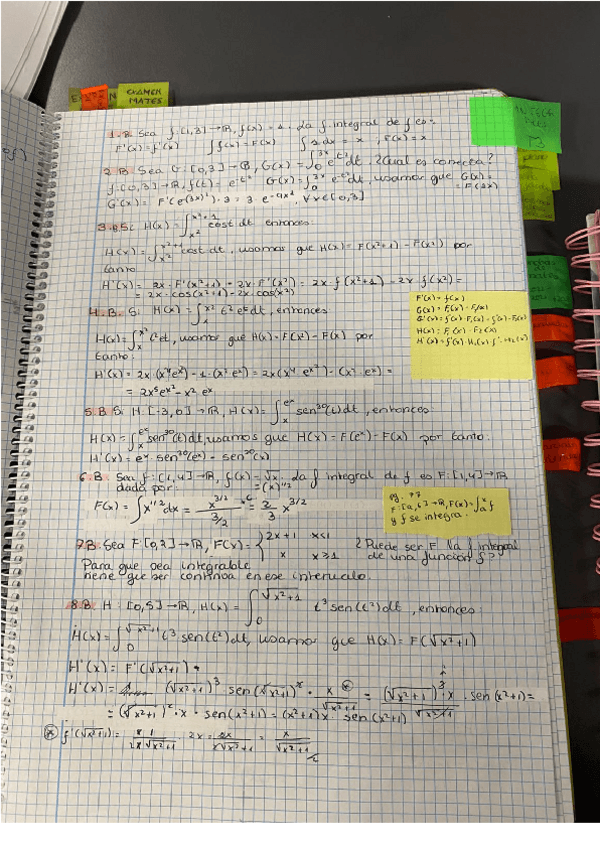 EXAMEN
MATES
INTEGRALES
T3
1.B. Sea f: [1,3]→R, f(x) = 1. La f integral de f es:
F'(x) = f(x) ∫f(x) = F(x) ∫1 dx = x, F(x) = x
2.B Sea G: [0,3]→R, G(x) = ∫₀^{3x} e^{-t²} dt, ¿Cual es correcta?
f: [0,3]→R, f(t) = e^{-t²} G(x) = ∫₀^{3x} e^{-t²} dt, usamos que G(x) = F(3x)
G'(x) = F'(e^{(3x)²}) · 3 = 3 · e^{-9x²}, ∀x∈[0,3]
3.B Si H(x) = ∫_{x²}^{x²+1} cost dt entonces:
H(x) = ∫_{x²}^{x²+1} cost dt, usamos que H(x) = F(x²+1) - F(x²) por
tanto
H'(x) = 2x · F'(x²+1) - 2x · F'(x²) = 2x · f(x²+1) - 2x f(x²) =
= 2x · cos(x²+1) - 2x · cos(x²)
F'(x) = f(x)
4.B. Si H(x) = ∫_x^{x²} t² e^t dt, entonces
H(x) = ∫_x^{x²} t² e^t dt, usamos que H(x) = F(x²) - F(x) por
tanto:
H'(x) = 2x · (x⁴ e^{x²}) - 1 · (x² e^x) = 2x(x⁴ e^{x²}) - (x² · e^x) =
= 2x⁵ e^{x²} - x² e^x
5.B Si H: [-3,0]→R, H(x) = ∫_x^{e^x} sen³⁰(t) dt, entonces
H(x) = ∫_x^{e^x} sen³⁰(t) dt, usamos que H(x) = F(e^x) - F(x) por tanto:
H'(x) = e^x · sen³⁰(e^x) - sen³⁰(x)
6.B. Sea f: [1,4]→R, f(x) = √x. La f integral de f es F: [1,4]→R
dada por: = (x)^{1/2}
F(x) = ∫x^{1/2} dx = x^{3/2} / 3/2 = 2/3 x^{3/2}
y f se integra.
7.B. Sea F: [0,2]→R, F(x) = { 2x+1 x<1
x x≥1
¿Puede ser F la f integral
de una función f?
Para que sea integrable
tiene que ser continua en ese intervalo.
8.B. H: [0,5]→R, H(x) = ∫₀^{√x²+1} t³ sen(t²) dt, entonces:
H(x) = ∫₀^{√x²+1} t³ sen(t²) dt, usamos que H(x) = F(√x²+1)
H'(x) = F'(√x²+1) ·
H'(x) = (√x²+1)³ · sen(√x²+1)² · x/√x²+1 = (√x²+1)³ · x/√x²+1 · sen(x²+1) =
= (√x²+1)² · x · sen(x²+1) = (x²+1)x · sen(x²+1)
* f'(√x²+1) = 1/2√x²+1 · 2x = 2x/2√x²+1 = x/√x²+1